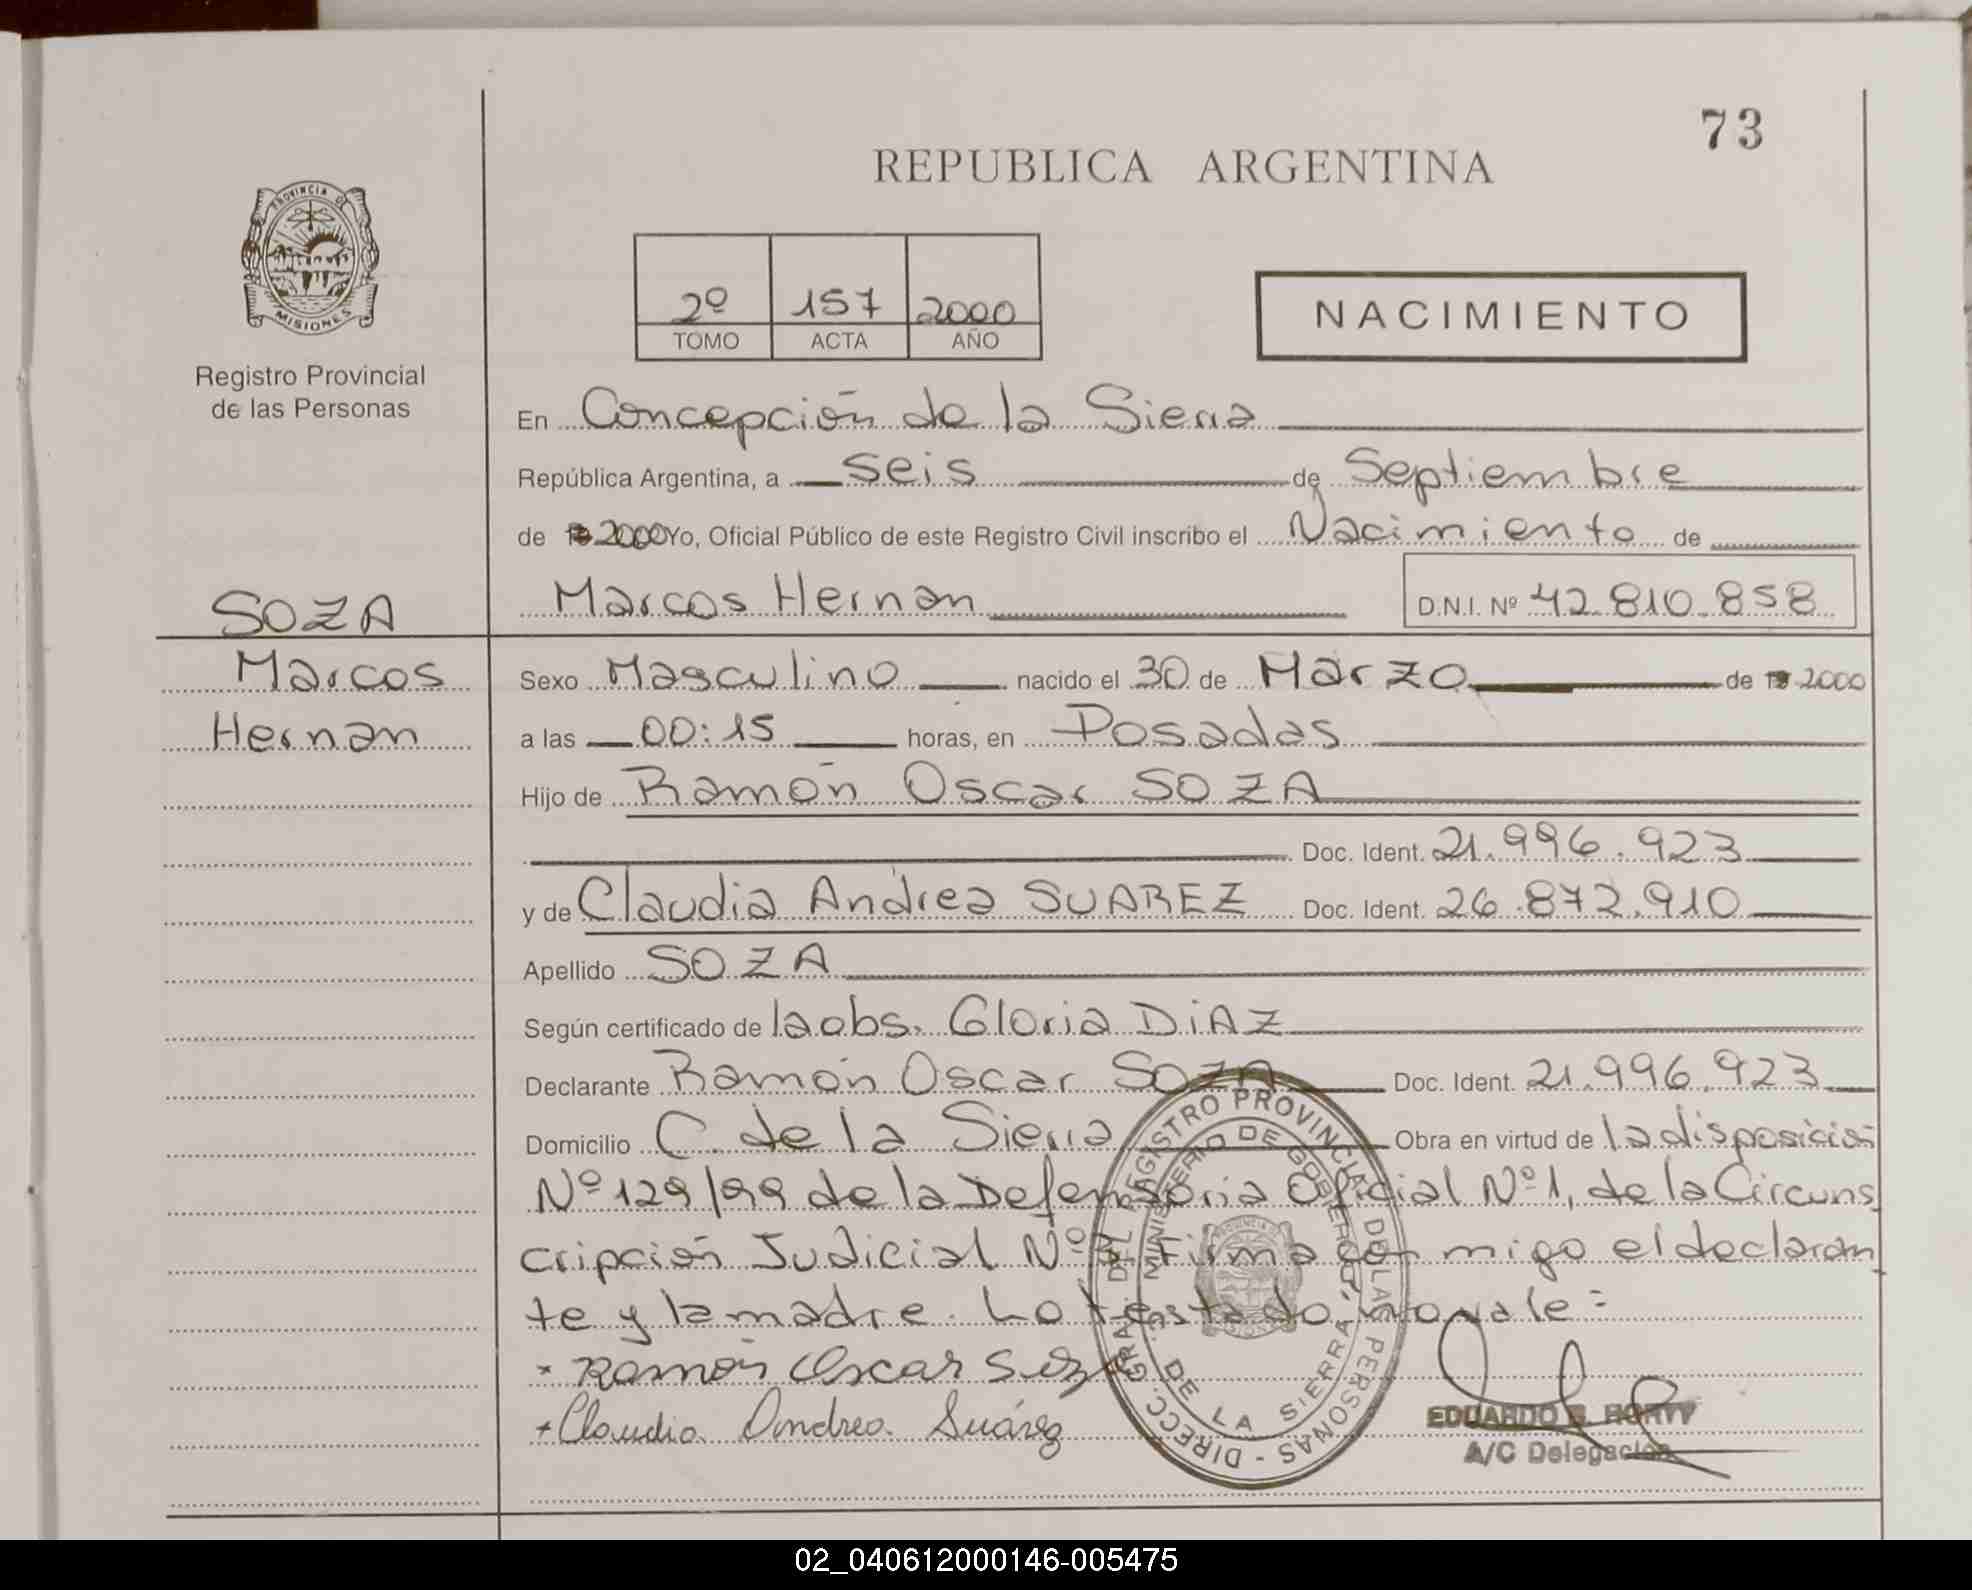 73
REPUBLICA ARGENTINA
PROVINCIA DE
MISIONES
Registro Provincial
de las Personas
2º 157 2000
TOMO ACTA AÑO
NACIMIENTO
En Concepción de la Sierra
República Argentina, a seis de Septiembre
de 2000 Yo, Oficial Público de este Registro Civil inscribo el Nacimiento de
Marcos Hernan D.N.I. Nº 42.810.858
SOZA
Marcos
Hernan
Sexo Masculino nacido el 30 de Marzo de 2000
a las 00:15 horas, en Posadas
Hijo de Ramón Oscar SOZA
Doc. Ident. 21.996.923
y de Claudia Andrea SUAREZ Doc. Ident. 26.872.910
Apellido SOZA
Según certificado de la obs. Gloria DiAZ
Declarante Ramón Oscar SOZA Doc. Ident. 21.996.923
Domicilio C. de la Sierra Obra en virtud de la disposición
Nº 129/99 de la Defensoria Oficial Nº 1, de la Circuns
cripción Judicial Nº Firma con migo el declaran
te y la madre. Lo testado, no vale =
* Ramón Oscar Soza
+ Claudia Andrea Suárez
DIRECC. GRAL. DEL REGISTRO PROVINCIAL DE LAS PERSONAS -
MINISTERIO DE GOBIERNO
DE LA SIERRA
EDUARDO
A/C Delegación
02_040612000146-005475